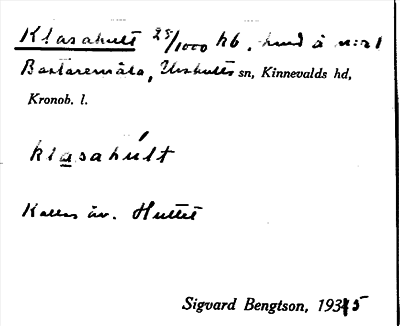 Klasahult 25/1000 kb, hmd å n:o 1
Bastaremåla, Urshults sn, Kinnevalds hd,
Kronob. l.
klasahúlt
Kallas äv. Hultet
Sigvard Bengtson, 1935